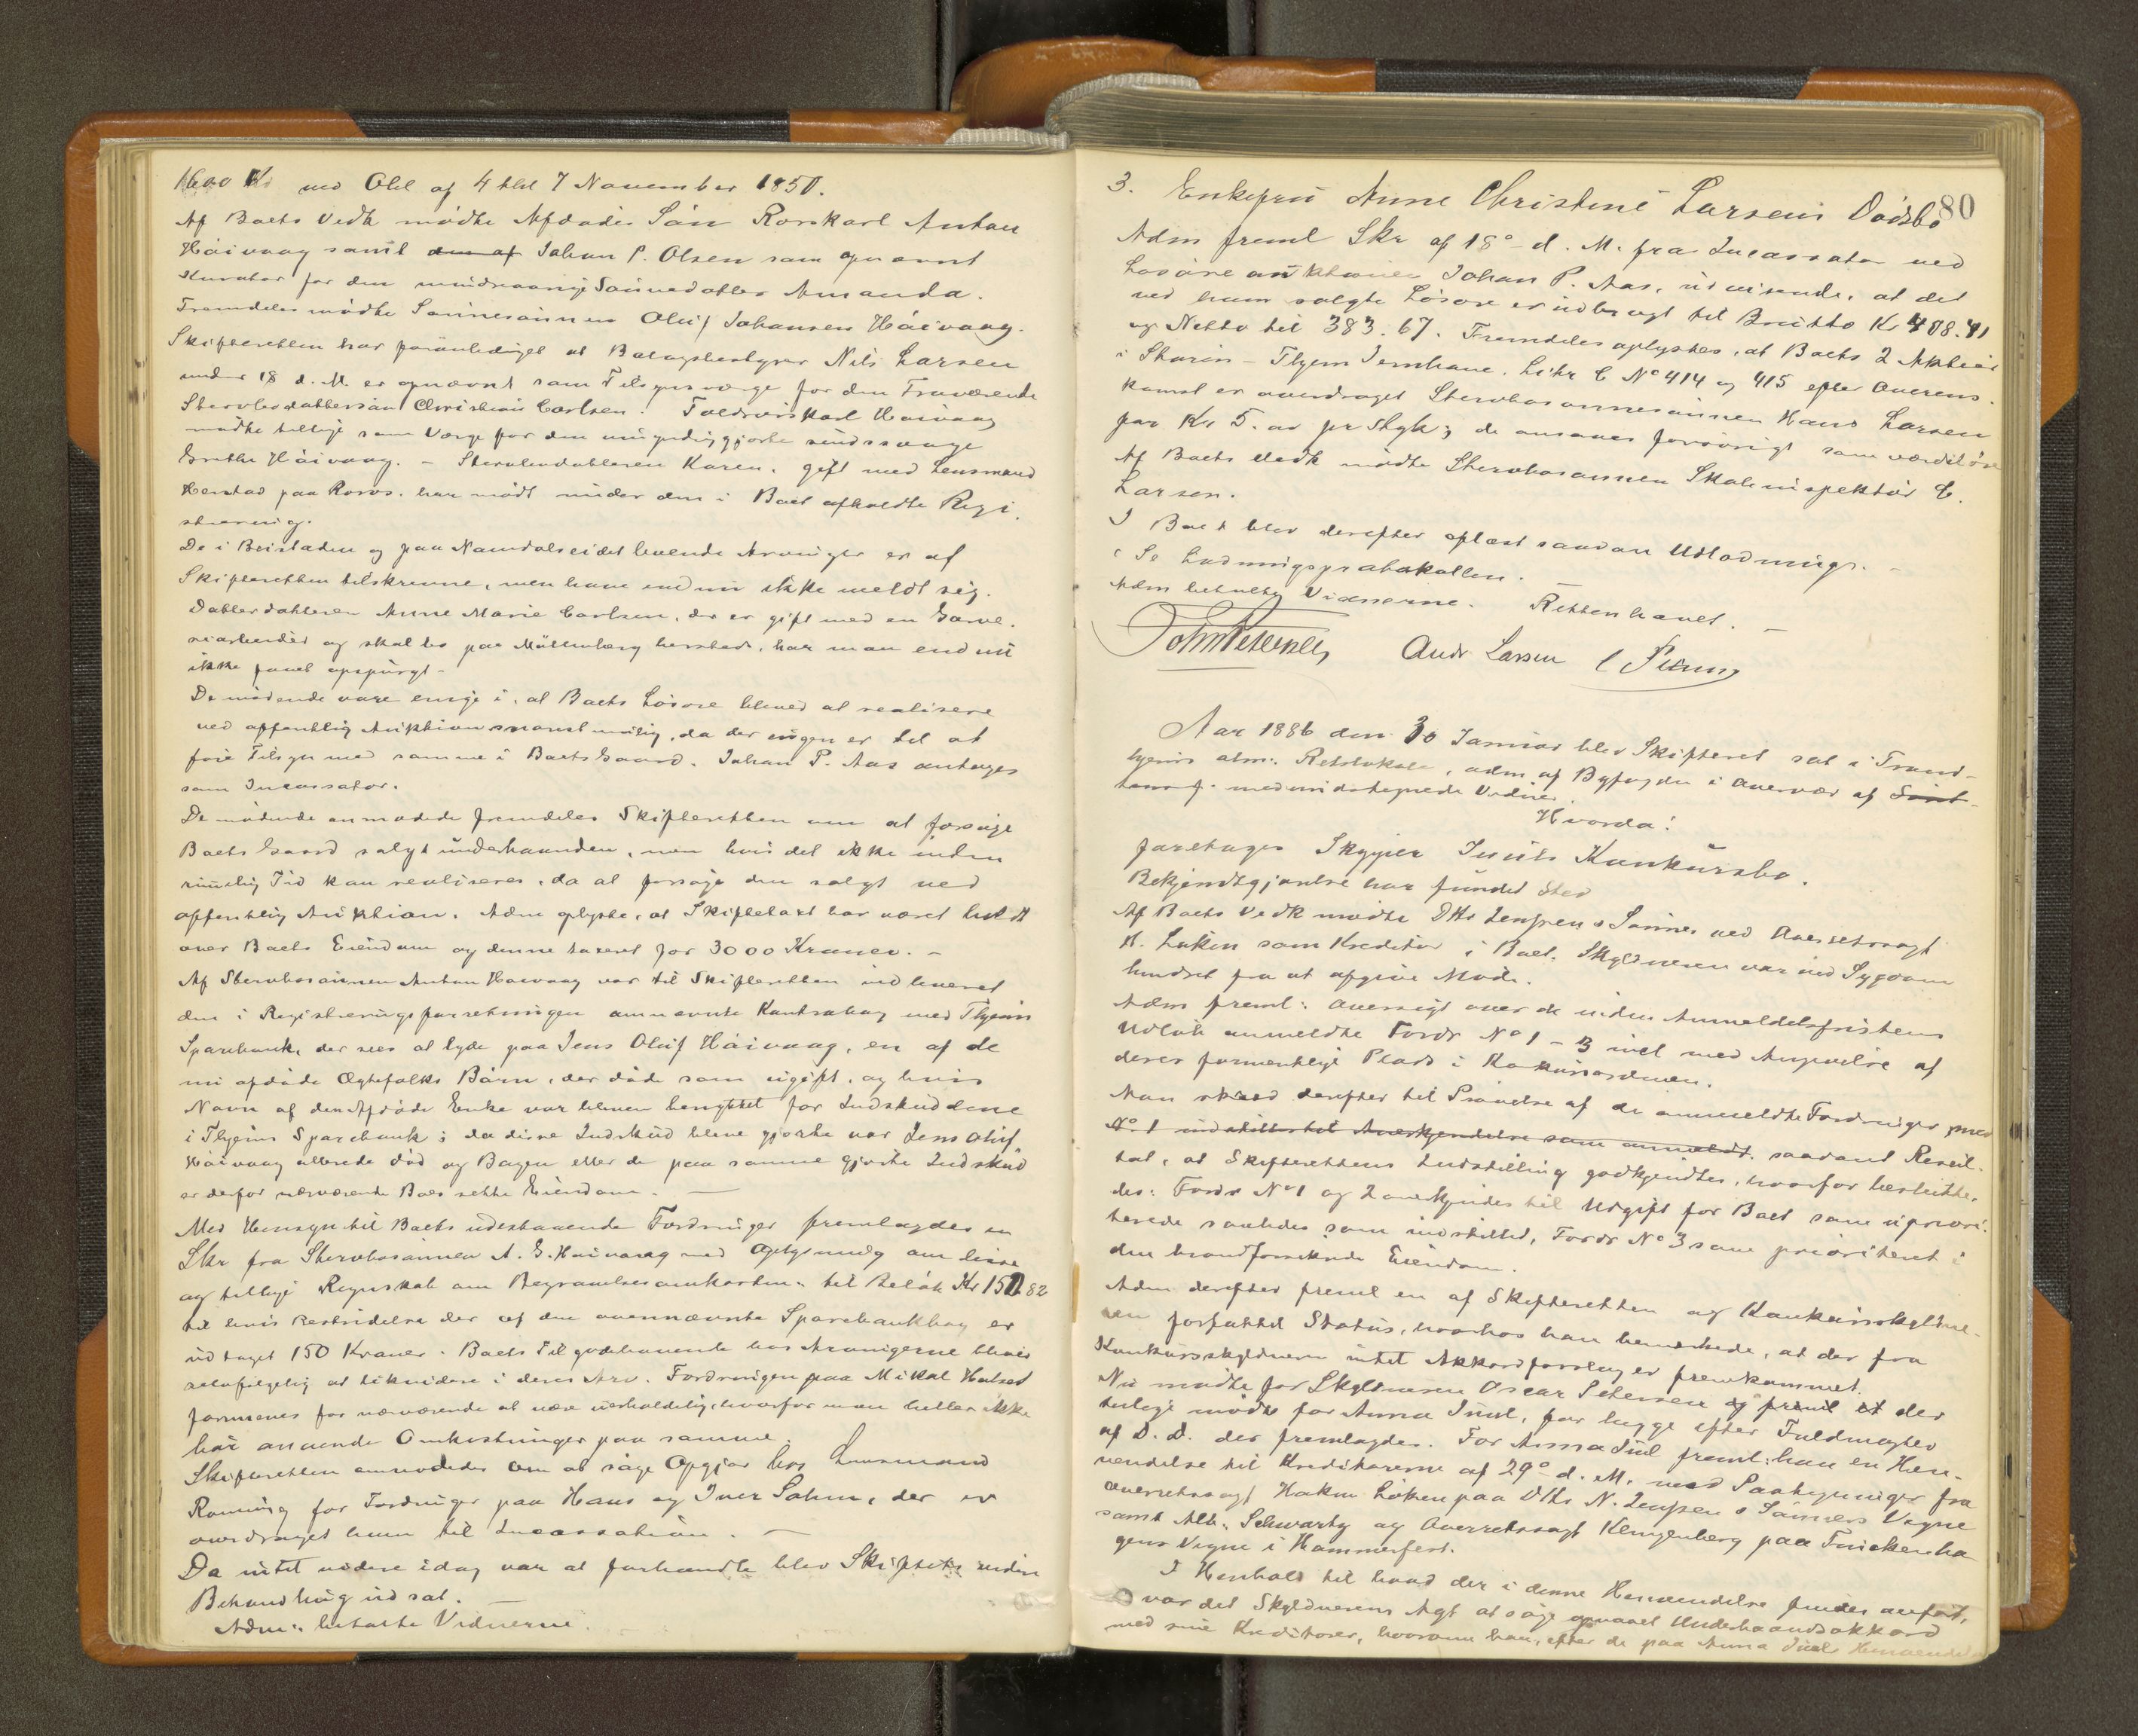 1600 Kr ved Obl af 4 thl 7 November 1850.
Af Boets Vedk mødte Afdødes Søn Rorskarl Anton
Håivaag samt den af Johan P. Olsen som opnævnt
Kurator for den mindreaarige Sønnedatter Amanda.
Fremdeles mødte Sønnesønnen Oluf Johansen Håivaag.
Skifteretten har foranlediget at Bolagsbestyrer Nils Larsen
under 18 d. M. er opnævnt som Tilsynsværge for den Fraværende
Stervbodattersøn Christian Carlsen.
mødte tillige som Værge for den umyndiggjorte sindssvage
Grethe Håivaag. - Stervbodatteren Karen, gift med Lensmand
Herstad paa Roros, har mødt under den i Boet afholdte Regi-
strering.
De i Beistaden og paa Namdalseidet boende Arvinger er af
Skifteretten tilskrevne, men have endnu ikke meldt sig.
Datterdatteren Anne Marie Carlsen, der er gift med en Garve-
riarbeider og skal bo paa Møllenberg hersteds, har man endnu
ikke faaet opspurgt -
De mødende vare enige i, at Boets Løsøre bliver at realisere
ved offentlig Auktion snarest mulig, da der ingen er til at
føre Tilsyn med samme i Boets Gaard. Johan P. Aas antages
som Incassator.
De mødende anmodede fremdeles Skifteretten om at forsøge
Boets Gaard solgt underhaanden, men hvis det ikke inden
rimelig Tid kan realiseres, da at forsøge den solgt ved
offentlig Auktion. Adm oplyste, at Skiftetaxt har været holdt
over Boets Eiendom og denne taxeret for 3000 Kroner. -
Af Stervbosønnen Anton Håivaag var til Skifteretten indleveret
den i Registreringsforretningen omnævnte Kontrabog med Thjems
Sparebank, der sees at lyde paa Jens Oluf Håivaag, en af de
nu afdøde Ægtefolks Børn, der døde som ugift, og hvis
Navn af den Afdøde Enke var bleven benyttet for Indskuddene
i Thjems Sparebank; da disse Indskud bleve gjorte var Jens Oluf
Håivaag allerede død og Bogen eller de paa samme gjorte Indskud
er derfor nærværende Boes rette Eiendom. -
Med Hensyn til Boets udestaaende Fordringer fremlagdes en
Skr fra Stervbosønnen A. G. Håivaag med Oplysning om disse
og tillige Regnskab om Begravelsesomkostn: til Beløb Kr 151 82
til hvis Bestridelse der af den ovennævnte Sparebankbog er
udtaget 150 Kroner. Boets Tilgodehavende hos Arvingerne bliver
selvfølgelig at likvidere i deres Arv. Fordringen paa Mikal Halset
formenes for nærværende at være uerholdelig, hvorfor man heller ikke
bør anvende Omkostninger paa samme.
Skifteretten anmodedes om at søge Opgjør hos Lensmand
Roming for Fordringer paa Hans og Iver Sahm, der er
overdraget ham til Incassation. -
Da intet videre idag var at forhandle blev Skiftets videre
Behandling udsat. -
Adm: betalte Vidnerne.
80
3. Enkefru Anne Christine Larsens Dødsbo
Adm freml Skr af 18° d. M. fra Incassator ved
Løsøreauktionen Johan P. Aas, udvisende, at det
ved ham solgte Løsøre er udbragt til Brutto Kr 408.41
og Netto til 383.67. Fremdeles oplystes, at Boets 2 Aktier
i Størin - Thjem Jernbane, Litr C No 414 og 415 efter Overens-
komst er overdraget Stervbosønnesønnen Hans Larsen
for Kr 5.00 pr Styk; de ansaaes forøvrigt som værdiløse
Af Boets Vedk mødte Stervbosønnen Skoleinspektør C.
Larsen.
I Boet blev derefter oplæst saadan Udlodning. -
( Se Lodningsprotokollen.
Adm betalte Vidnerne. Retten hævet. -
John Petersen Andr Larsen
Aar 1886 den 30 Januar blev Skifteret sat i Trond-
hjems alm: Retslokale, adm af Byfogden i Overvær af
med undertegnede Vidner.
Hvorda:
foretages Skipper Juuls Konkursbo.
Bekjendtgjørelse har fundet Sted
Af Boets Vedk mødte DHr Jenssen & Sønner ved Overretssagf
H. Løken som Kreditor i Boet. Skyldneren var ved Sygdom
hindret fra at afgive Møde.
Adm freml: Oversigt over de inden Anmeldelsfristens
Udløb anmeldte Fordr No 1 - 3 incl med Angivelse af
deres formentlige Plads i Konkursordenen.
Man skred derefter til Prøvelse af de anmeldte Fordringer med
No 1 indstilles til Anerkjendelse som anmeldt. saadant Resul-
tat, at Skifterettens Indstilling godkjendtes, hvorfor besluttes
des: Fordr No 1 og 2 anerkjendes til Udgift for Boet som upriori-
terede saaledes som indstillet, Fordr No 3 som prioriteret i
den brandforsikrede Eiendom.
Adm derefter freml en af Skifteretten og Konkursskyldne-
ren forfattet Status, hvorhos han bemærkede, at der fra
Konkursskyldneren intet Akkordforslag er fremkommet.
Nu mødte for Skyldneren Oscar Petersen og freml et der
tillige mødte for Anna Juul, for begge efter Fuldmagter
af D. D. der fremlagdes. For Anna Juul freml: han en Hen-
vendelse til Kreditorerne af 29° d. M. med Paategninger fra
Overretssagf Hakon Løken paa DHr N. Jenssen & Sønners Vegne
samt Alb. Schwartz og Overretssagf Klingenberg paa Finckenha-
gens Vegne i Hammerfest.
I Henhold til hvad der i denne Henvendelse findes anført,
var det Skyldnerens Agt at søge opnaaet Underhaandsakkord
med sine Kreditorer, hvorom han, efter de paa Anna Juul Henvendelse